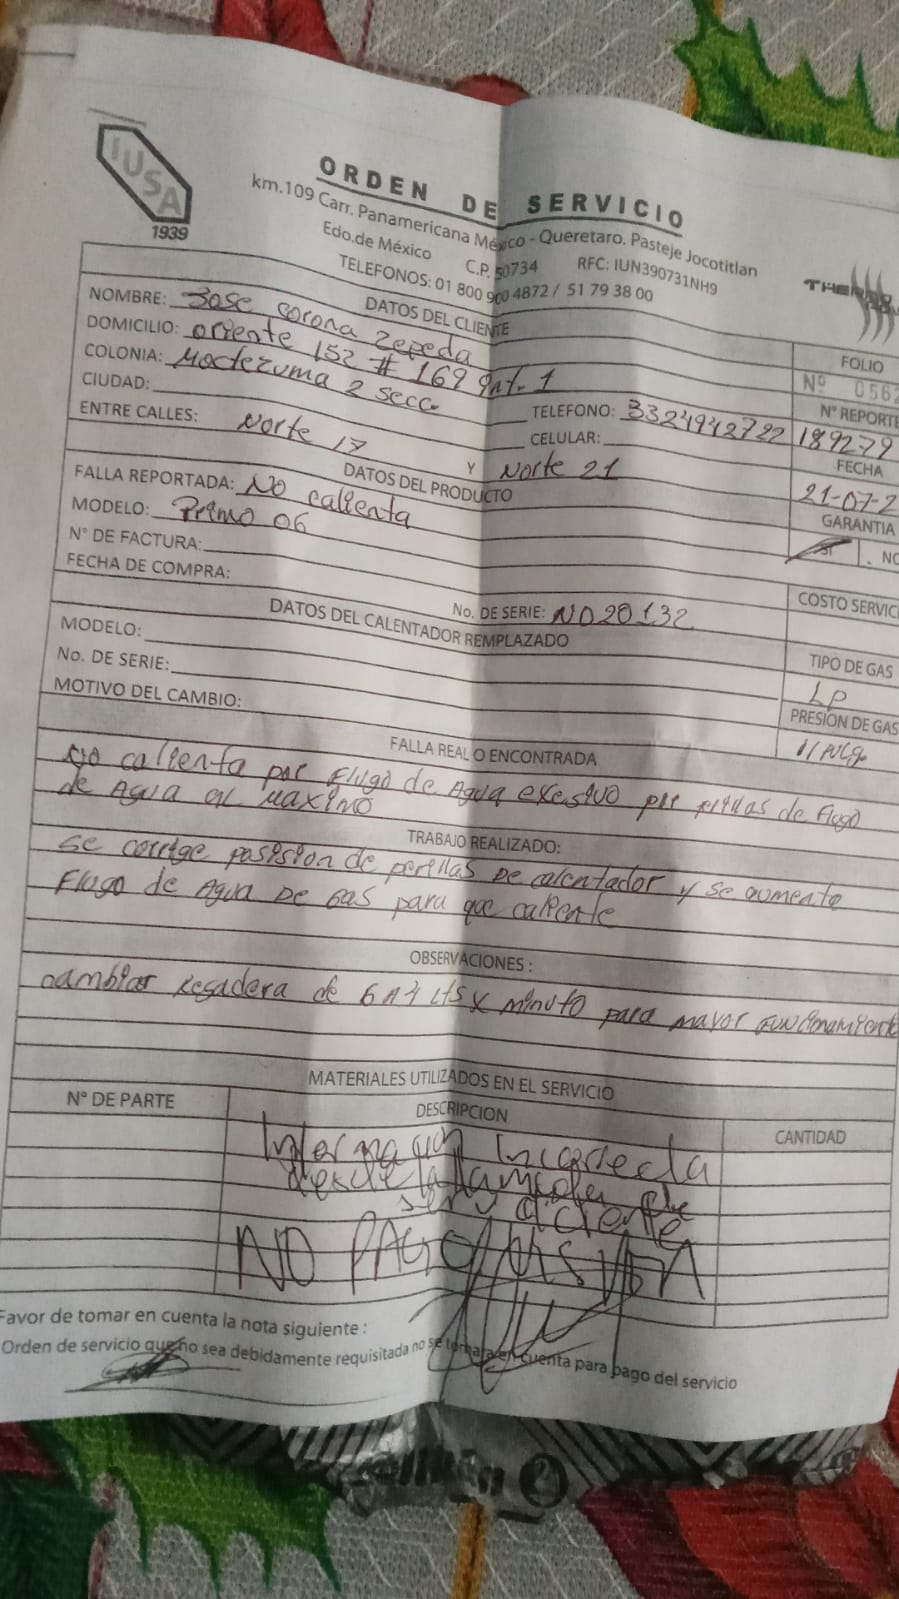 IUSA
1939
ORDEN DE SERVICIO
km.109 Carr. Panamericana México - Queretaro. Pasteje Jocotitlan
Edo.de México C.P. 50734 RFC: IUN390731NH9
TELEFONOS: 01 800 900 4872 / 51 79 38 00
THERMO
DATOS DEL CLIENTE
NOMBRE: Jose corona Zepeda
DOMICILIO: oriente 152 # 169 int. 1
COLONIA: Moctezuma 2 secc.
CIUDAD:
TELEFONO: 3324942722
CELULAR:
ENTRE CALLES: Norte 17 Y Norte 21
FOLIO
Nº 0562
N° REPORTE
189279
FECHA
21-07-2
GARANTIA
SI . NO
DATOS DEL PRODUCTO
FALLA REPORTADA: No calienta
MODELO: Primo 06
N° DE FACTURA:
FECHA DE COMPRA:
No. DE SERIE: ND20132
COSTO SERVICI
DATOS DEL CALENTADOR REMPLAZADO
MODELO:
No. DE SERIE:
MOTIVO DEL CAMBIO:
TIPO DE GAS
LP
PRESION DE GAS
FALLA REAL O ENCONTRADA
No calienta por Flugo de Agua exesivo por de Flugo
de Agua al Maximo
TRABAJO REALIZADO:
se corrige posision de perillas De calentador y se aumento
Flugo de Agua De Gas para que caliente
OBSERVACIONES :
cambiar Regadera de 6 Lts x minuto para mayor funcionamiento
MATERIALES UTILIZADOS EN EL SERVICIO
N° DE PARTE
DESCRIPCION
CANTIDAD
Informacion Incorrecta
desde la de
serv a cliente
NO PAGO
Favor de tomar en cuenta la nota siguiente :
Orden de servicio que no sea debidamente requisitada no se tomara en cuenta para pago del servicio